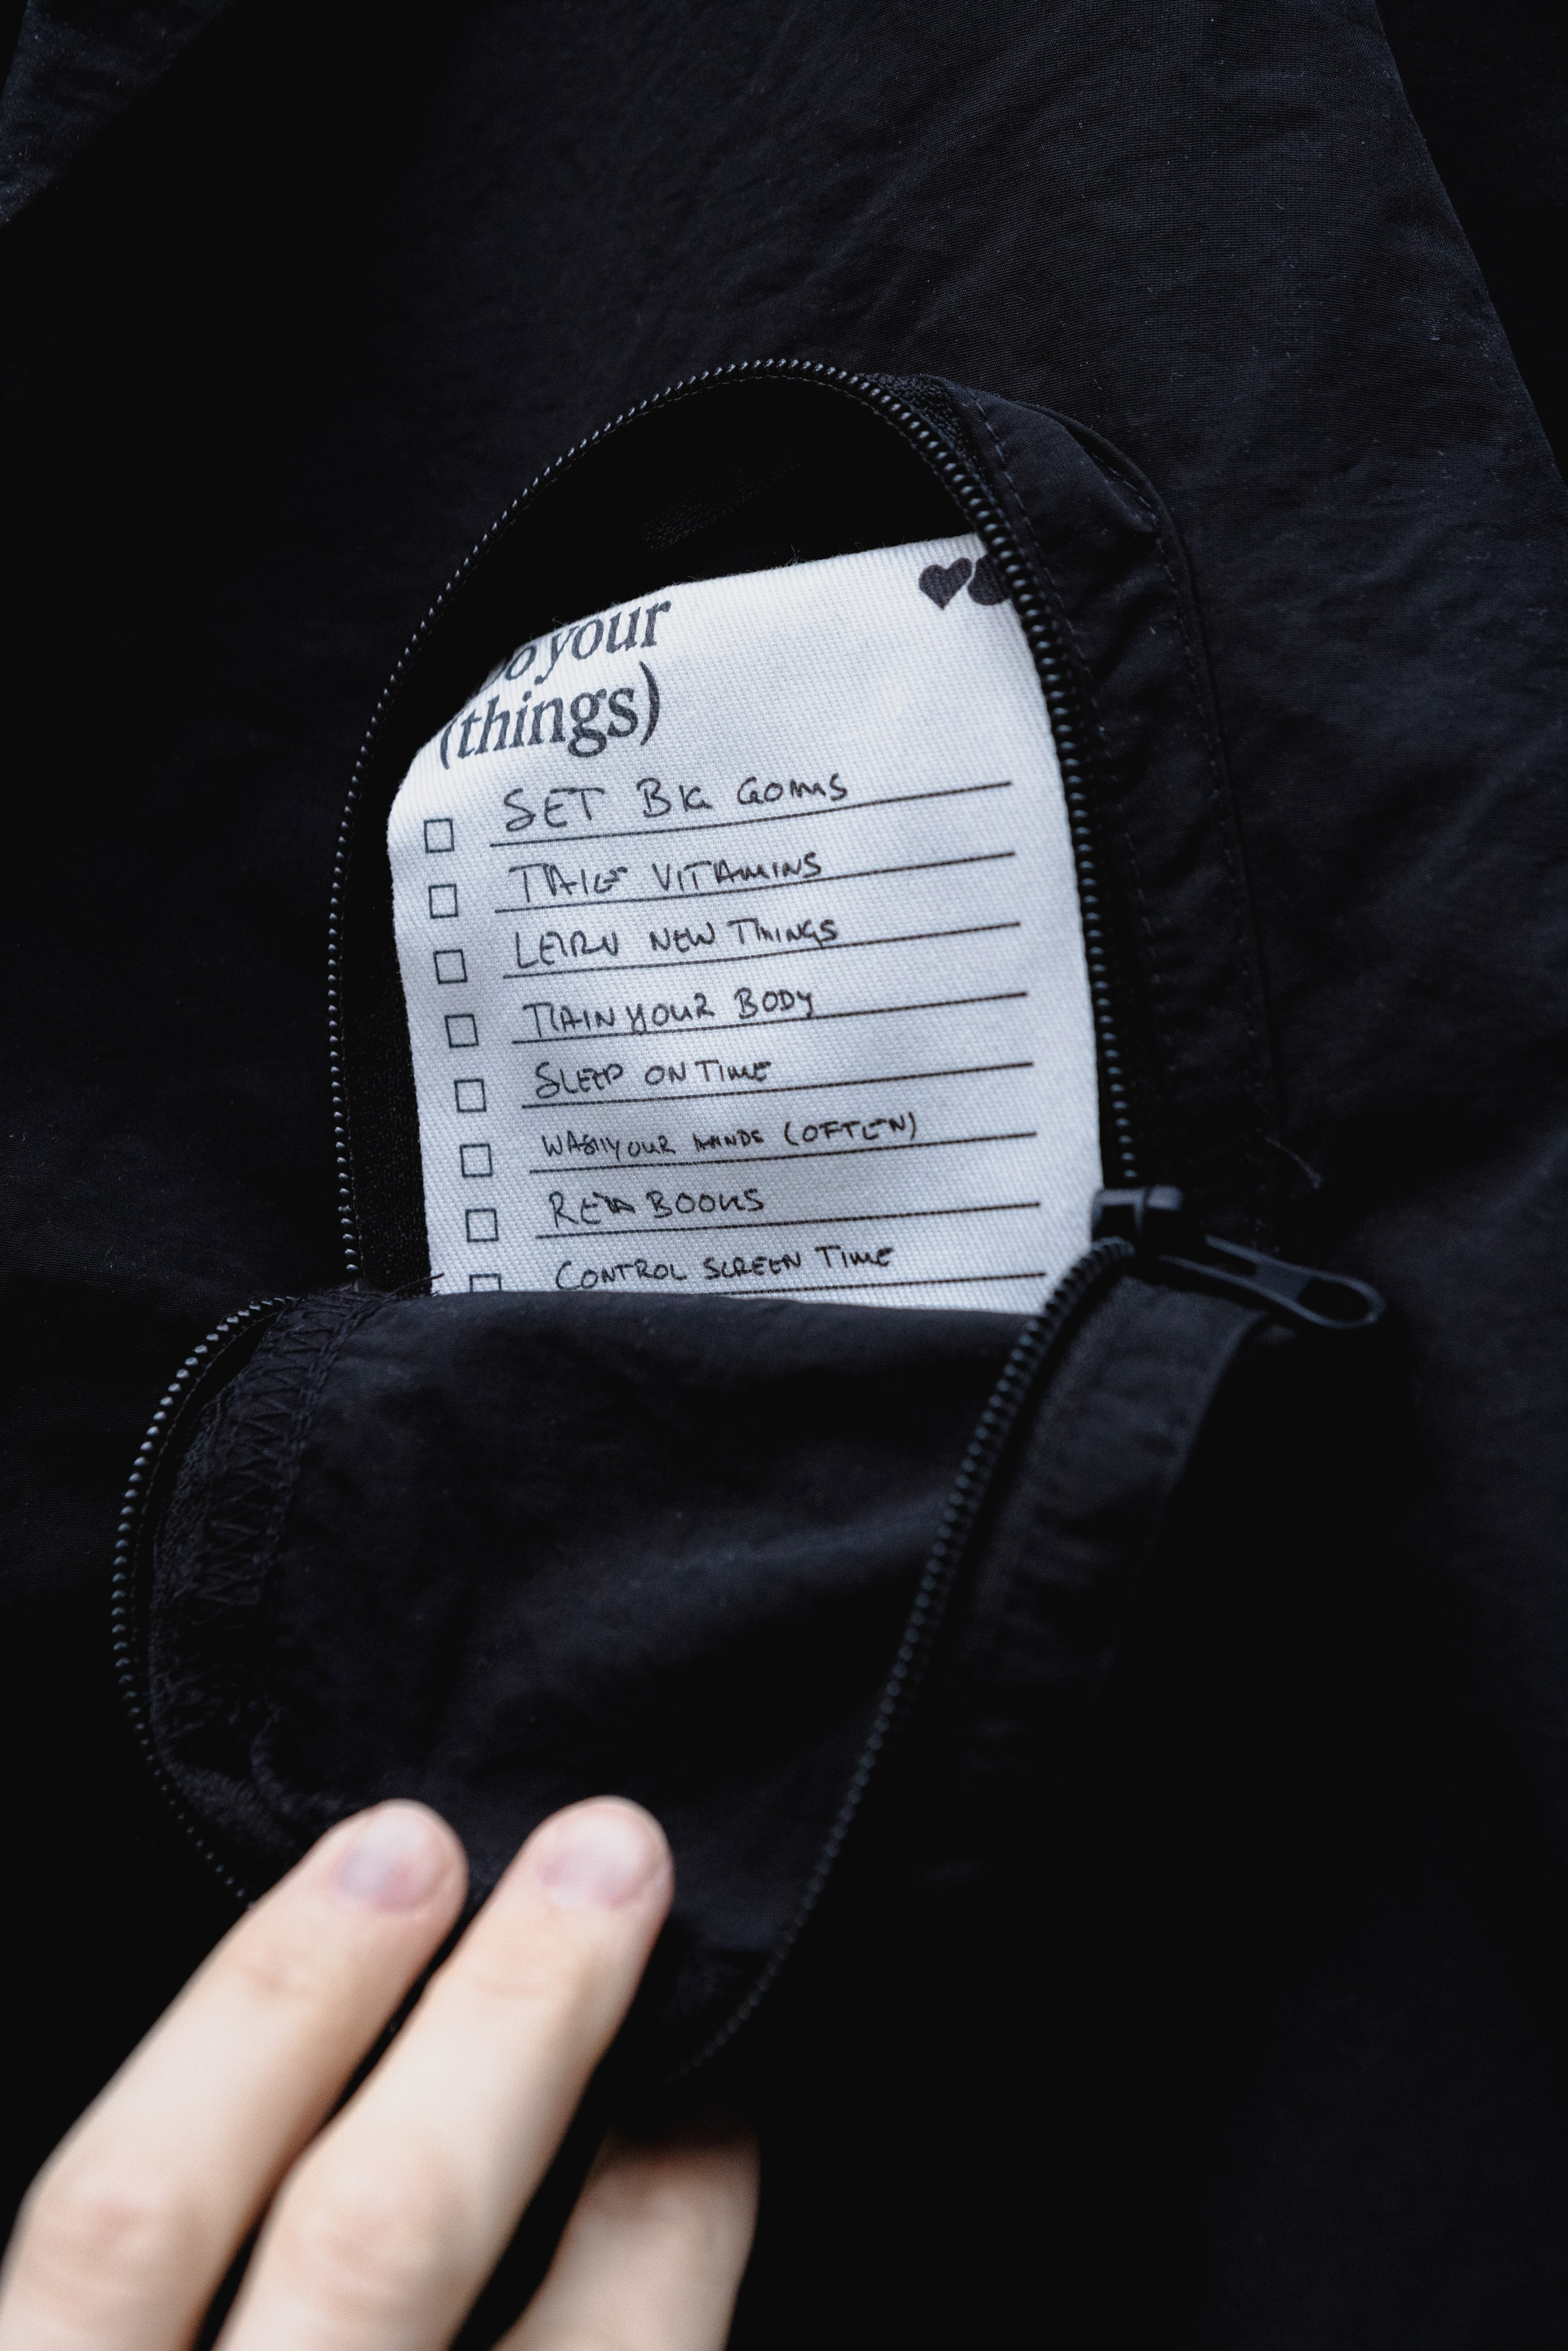 Do your
(things)
SET BIG GOALS
TAKE VITAMINS
LEARN NEW THINGS
TRAIN YOUR BODY
SLEEP ON TIME
WASH YOUR HANDS (OFTEN)
READ BOOKS
CONTROL SCREEN TIME